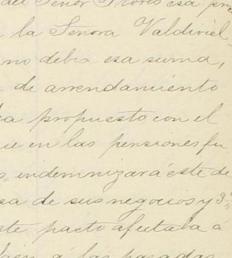 del Señor Flores esa pre
a la Señora Valdiviel
no debia esa suma,
de arrendamiento
ha propuesto con el
que en las pensiones fu
s indemnizará este de
sa de sus negocios y 3º
este pacto afectaba a
las pasadas